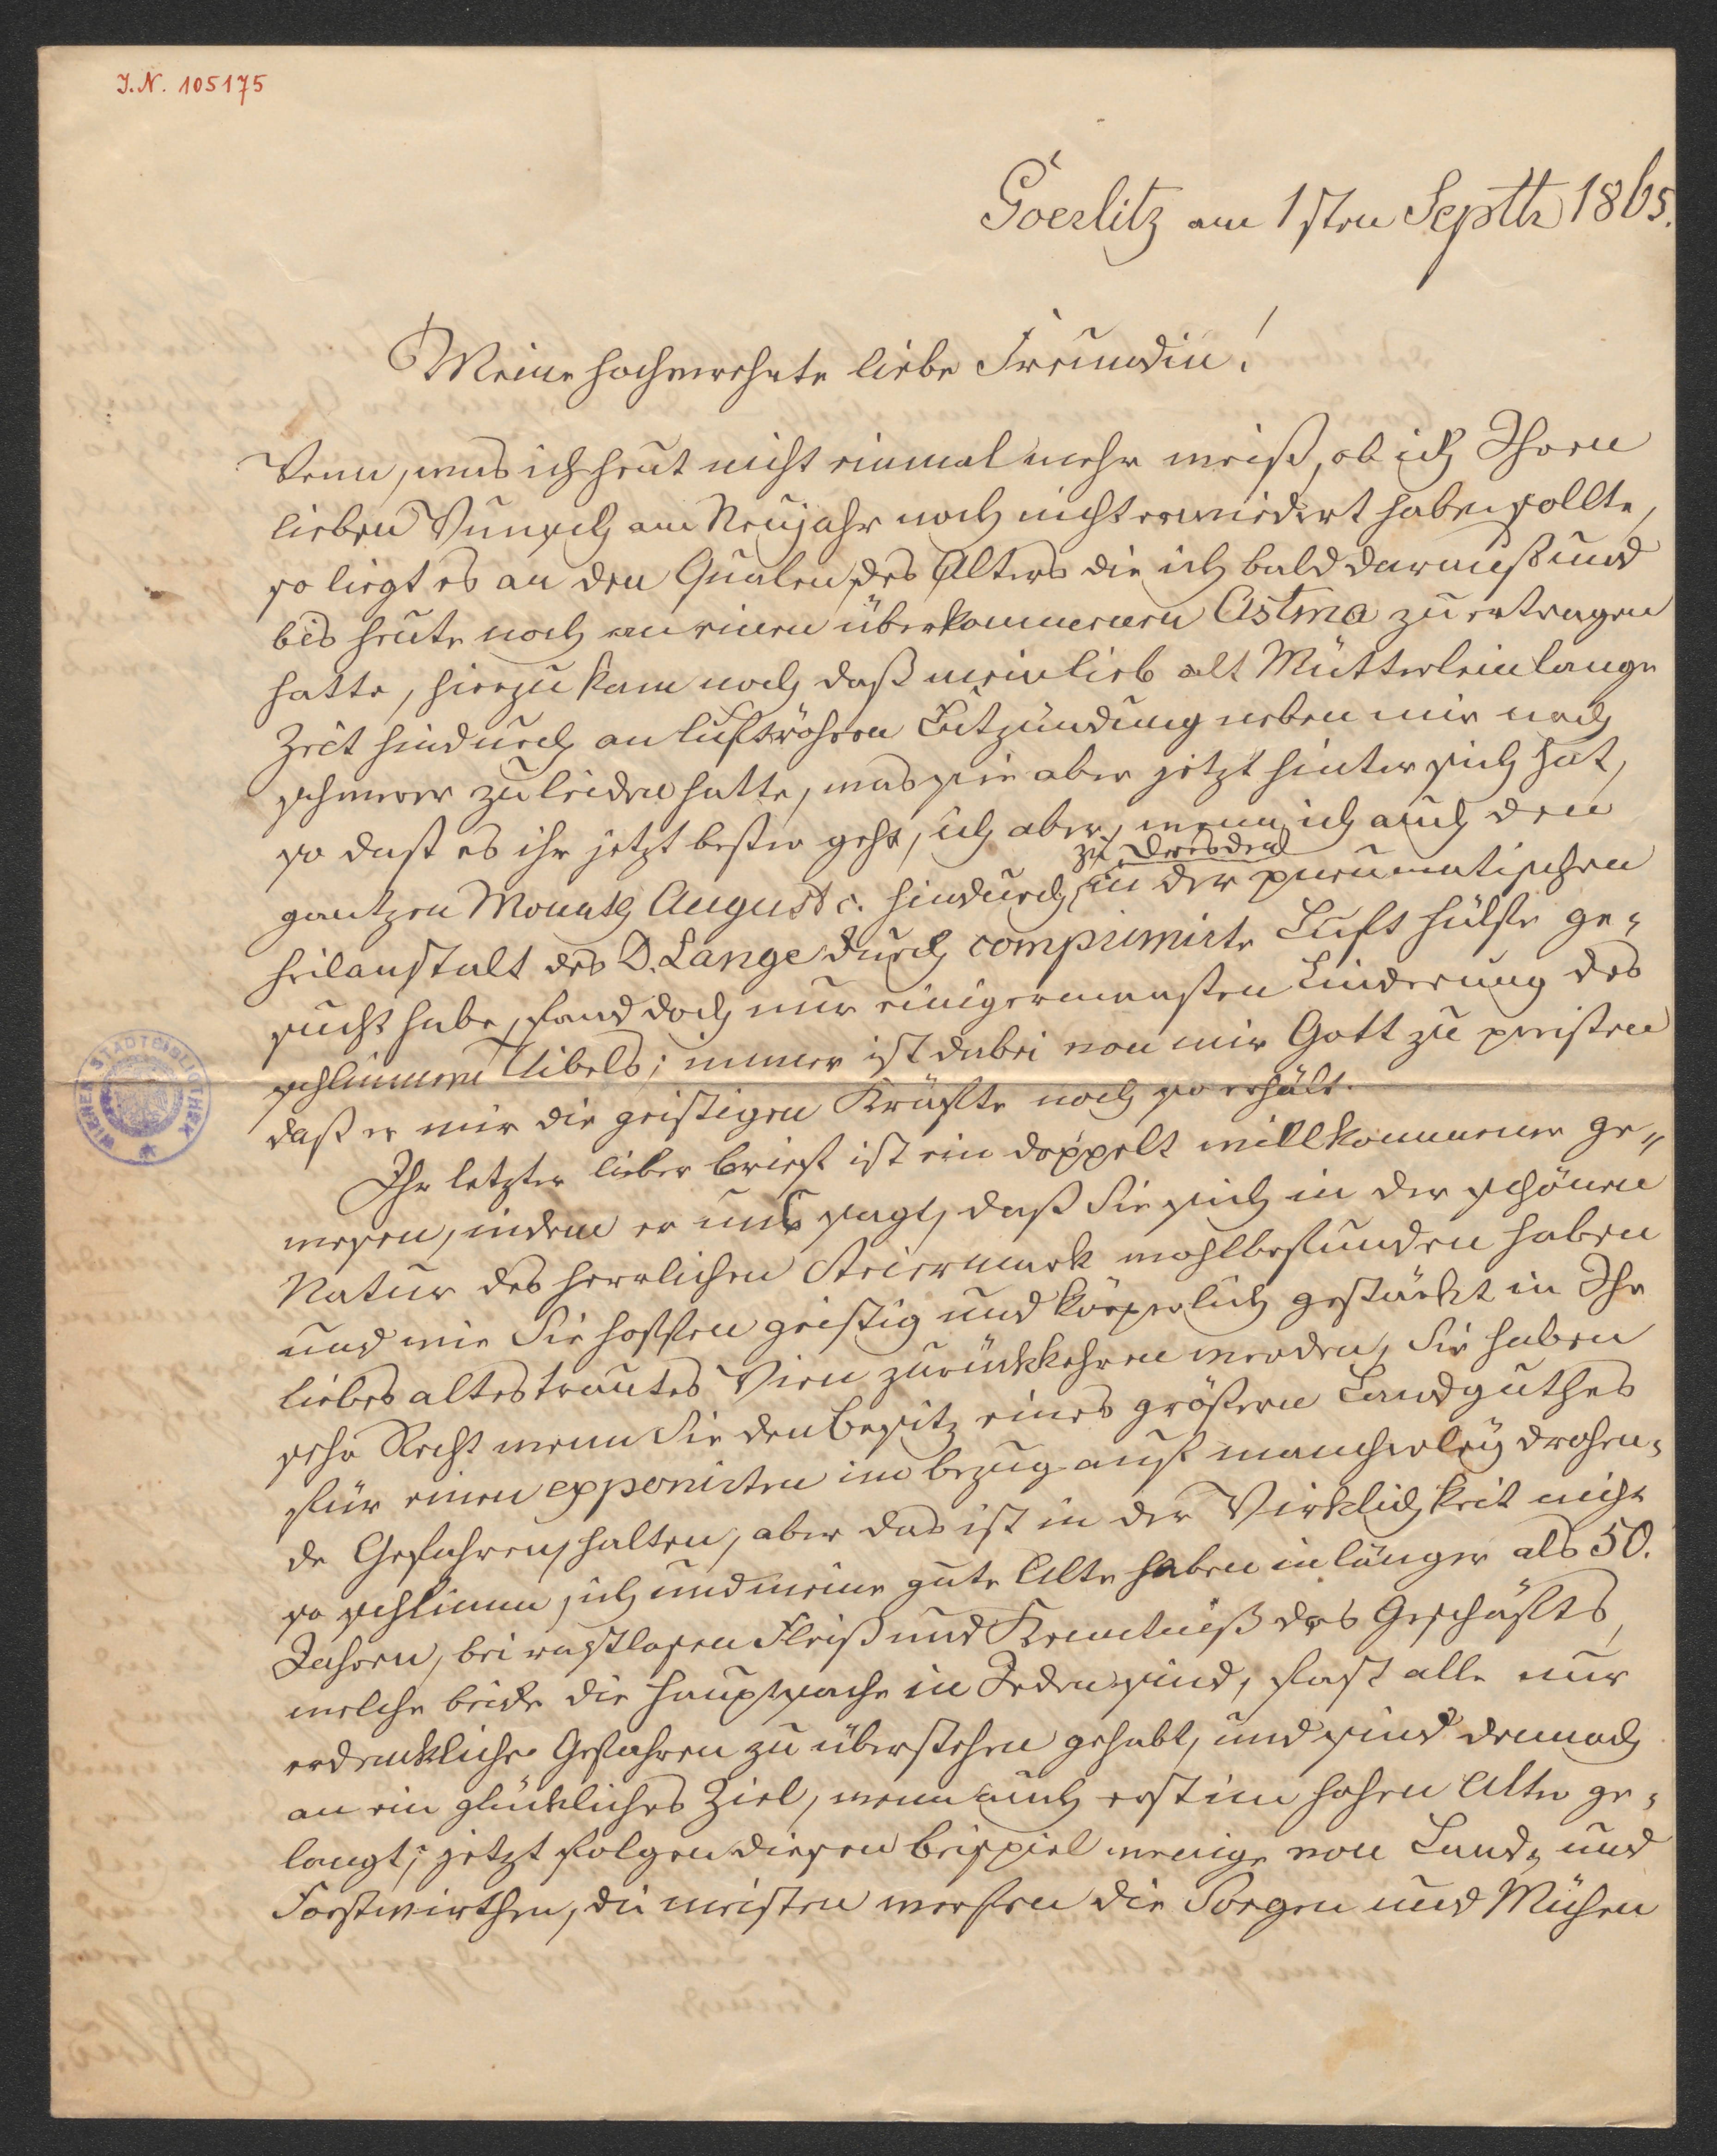 I.N. 105175
Goerlitz am 1sten Septbr 1865.
Meine hochverehrte liebe Freundin!
Wenn, was ich heut nicht einmal mehr weiß, ob ich Ihren
lieben Wunsch am Neujahr noch nicht erwiedert haben sollte,
so liegt es an den Qualen des Alters die ich bald darauf und
bis heute noch an einen überkommenen Astma zu ertragen
hatte, hierzu kam noch daß mein lieb alt Mütterlein lange
Zeit hindurch an Luftröhren Entzündung neben mir noch
schwerer zu leiden hatte, was sie aber jetzt hinter sich hat,
so daß es ihr jetzt besser geht, ich aber, wenn ich auch den
gantzen Monath August c. hindurch zu Dresden in der pneumatischen
Heilanstalt des D. Lange durch comprimirte Luft hülfe ge-
sucht habe, fand doch nur einigermassen Linderung des
schlimmen Uibels; immer ist dabei von mir Gott zu preisen
daß er mir die geistigen Kräfte noch so erhält.
Ihr letzter lieber Brief ist ein doppelt willkommener ge-
wesen, indem er uns sagt, daß Sie sich in der schönen
Natur des herrlichen Steiermark wohlbefunden haben
und wie Sie hoffen geistig und körperlich gestärkt in Ihr
liebes altes trautes Wien zurückkehren werden, Sie haben
sehr Recht wenn Sie den Besitz eines größern Landguthes
für einen exponirten in bezug auf mancherley drohen-
de Gefahren, halten, aber das ist in der Wirklichkeit nicht
so schlimm, ich und meine gute Alte haben in länger als 50.
Jahren, bei rastlosen Fleiß und Kenntniß des Geschäfts,
welche beide die Hauptsache in Jeden sind, fast alle nur
erdenkliche Gefahren zu überstehen gehabt, und sind dennoch
an ein glückliches Ziel, wenn auch erst im hohen Alter ge-
langt; jetzt folgen diesen beispiel wenige von Land- und
Forstwirthen, die meisten werfen die Sorgen und Mühen
WIENER STADTBIBLIOTHEK